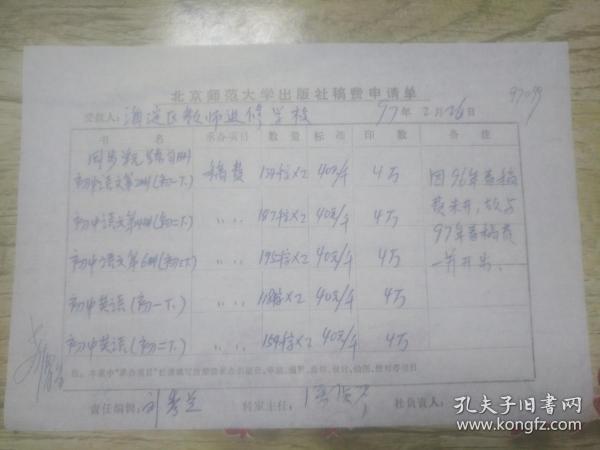 北京师范大学出版社稿费申请单
受款人：海淀区教师进修学校 97年2月26日
书名 承办项目 数量 标准 印数 备注
同步单元练习册
初中语文第2册(初一下) 稿费 40元/千 4万
初中语文第4册(初二下) 〃 〃 187千字×2 40元/千 4万
初中语文第6册(初三下) 〃 〃 195千字×2 40元/千 4万
初中英语(初一下) 〃 〃 118千字×2 40元/千 4万
初中英语(初二下) 〃 〃 159千字×2 40元/千 4万
因96年春稿
费未开，故与
97年春稿费
一并开出。
责任编辑：刘秀兰 社负责人：
孔夫子旧书网
www.kongfz.com